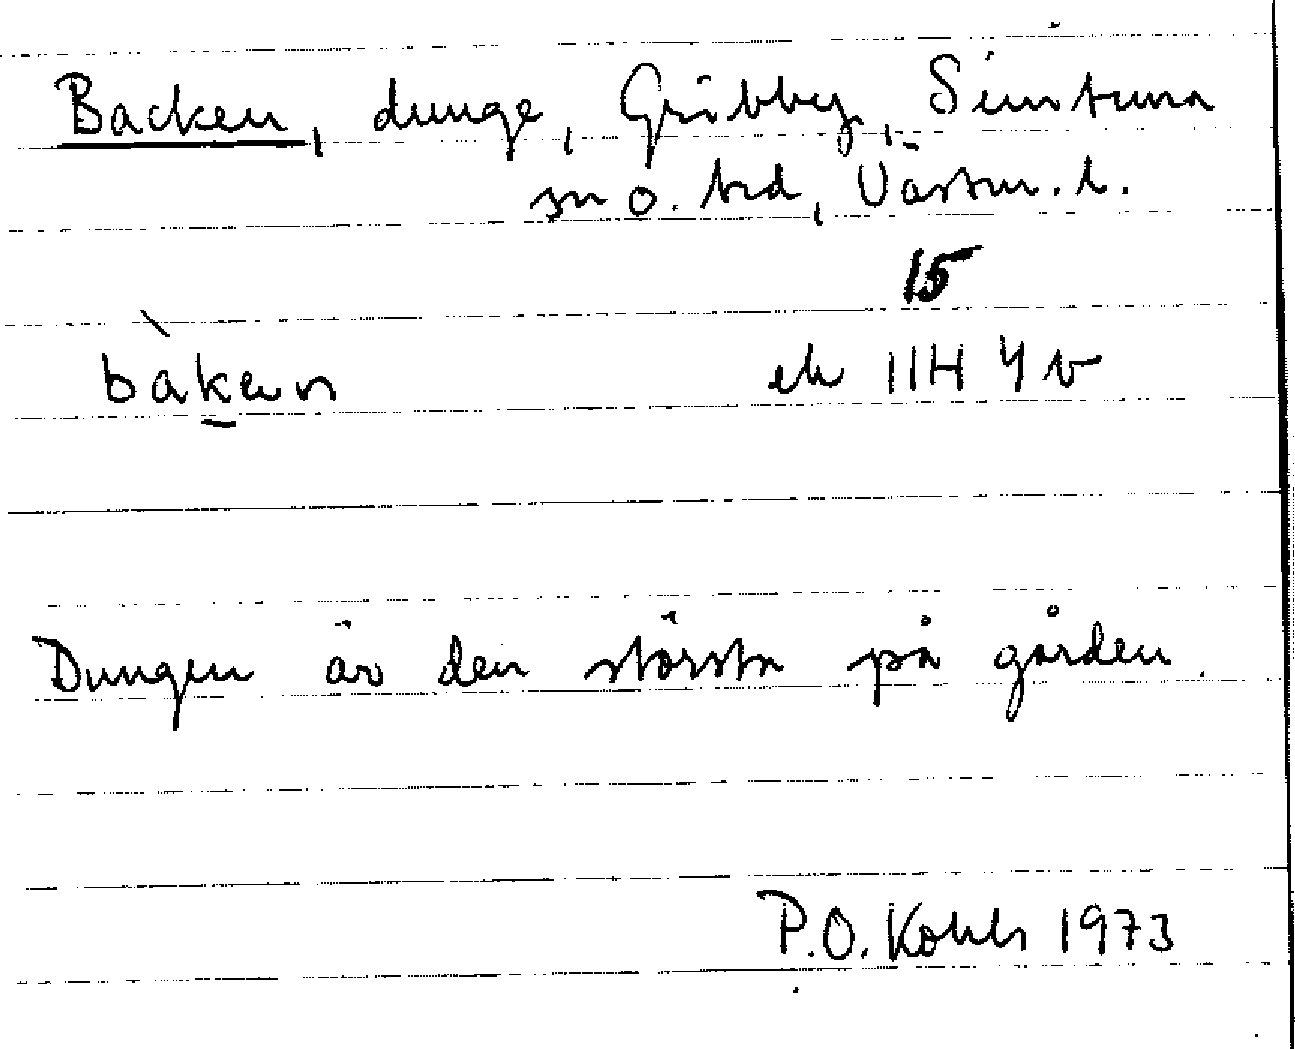 Backen, dunge, Gräbby, Simtuna
sn o. hd, Västm. l.
15
bàken ek 11H 4 v
Dungen är den största på gården.
P.O. Kohls 1973